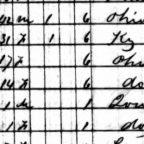 42 m 1 6 Ohio
31 f 1 6 Ky
17 f 6 Ohio
14 f 6 do
1 m 1 Iowa
1 f 1 do